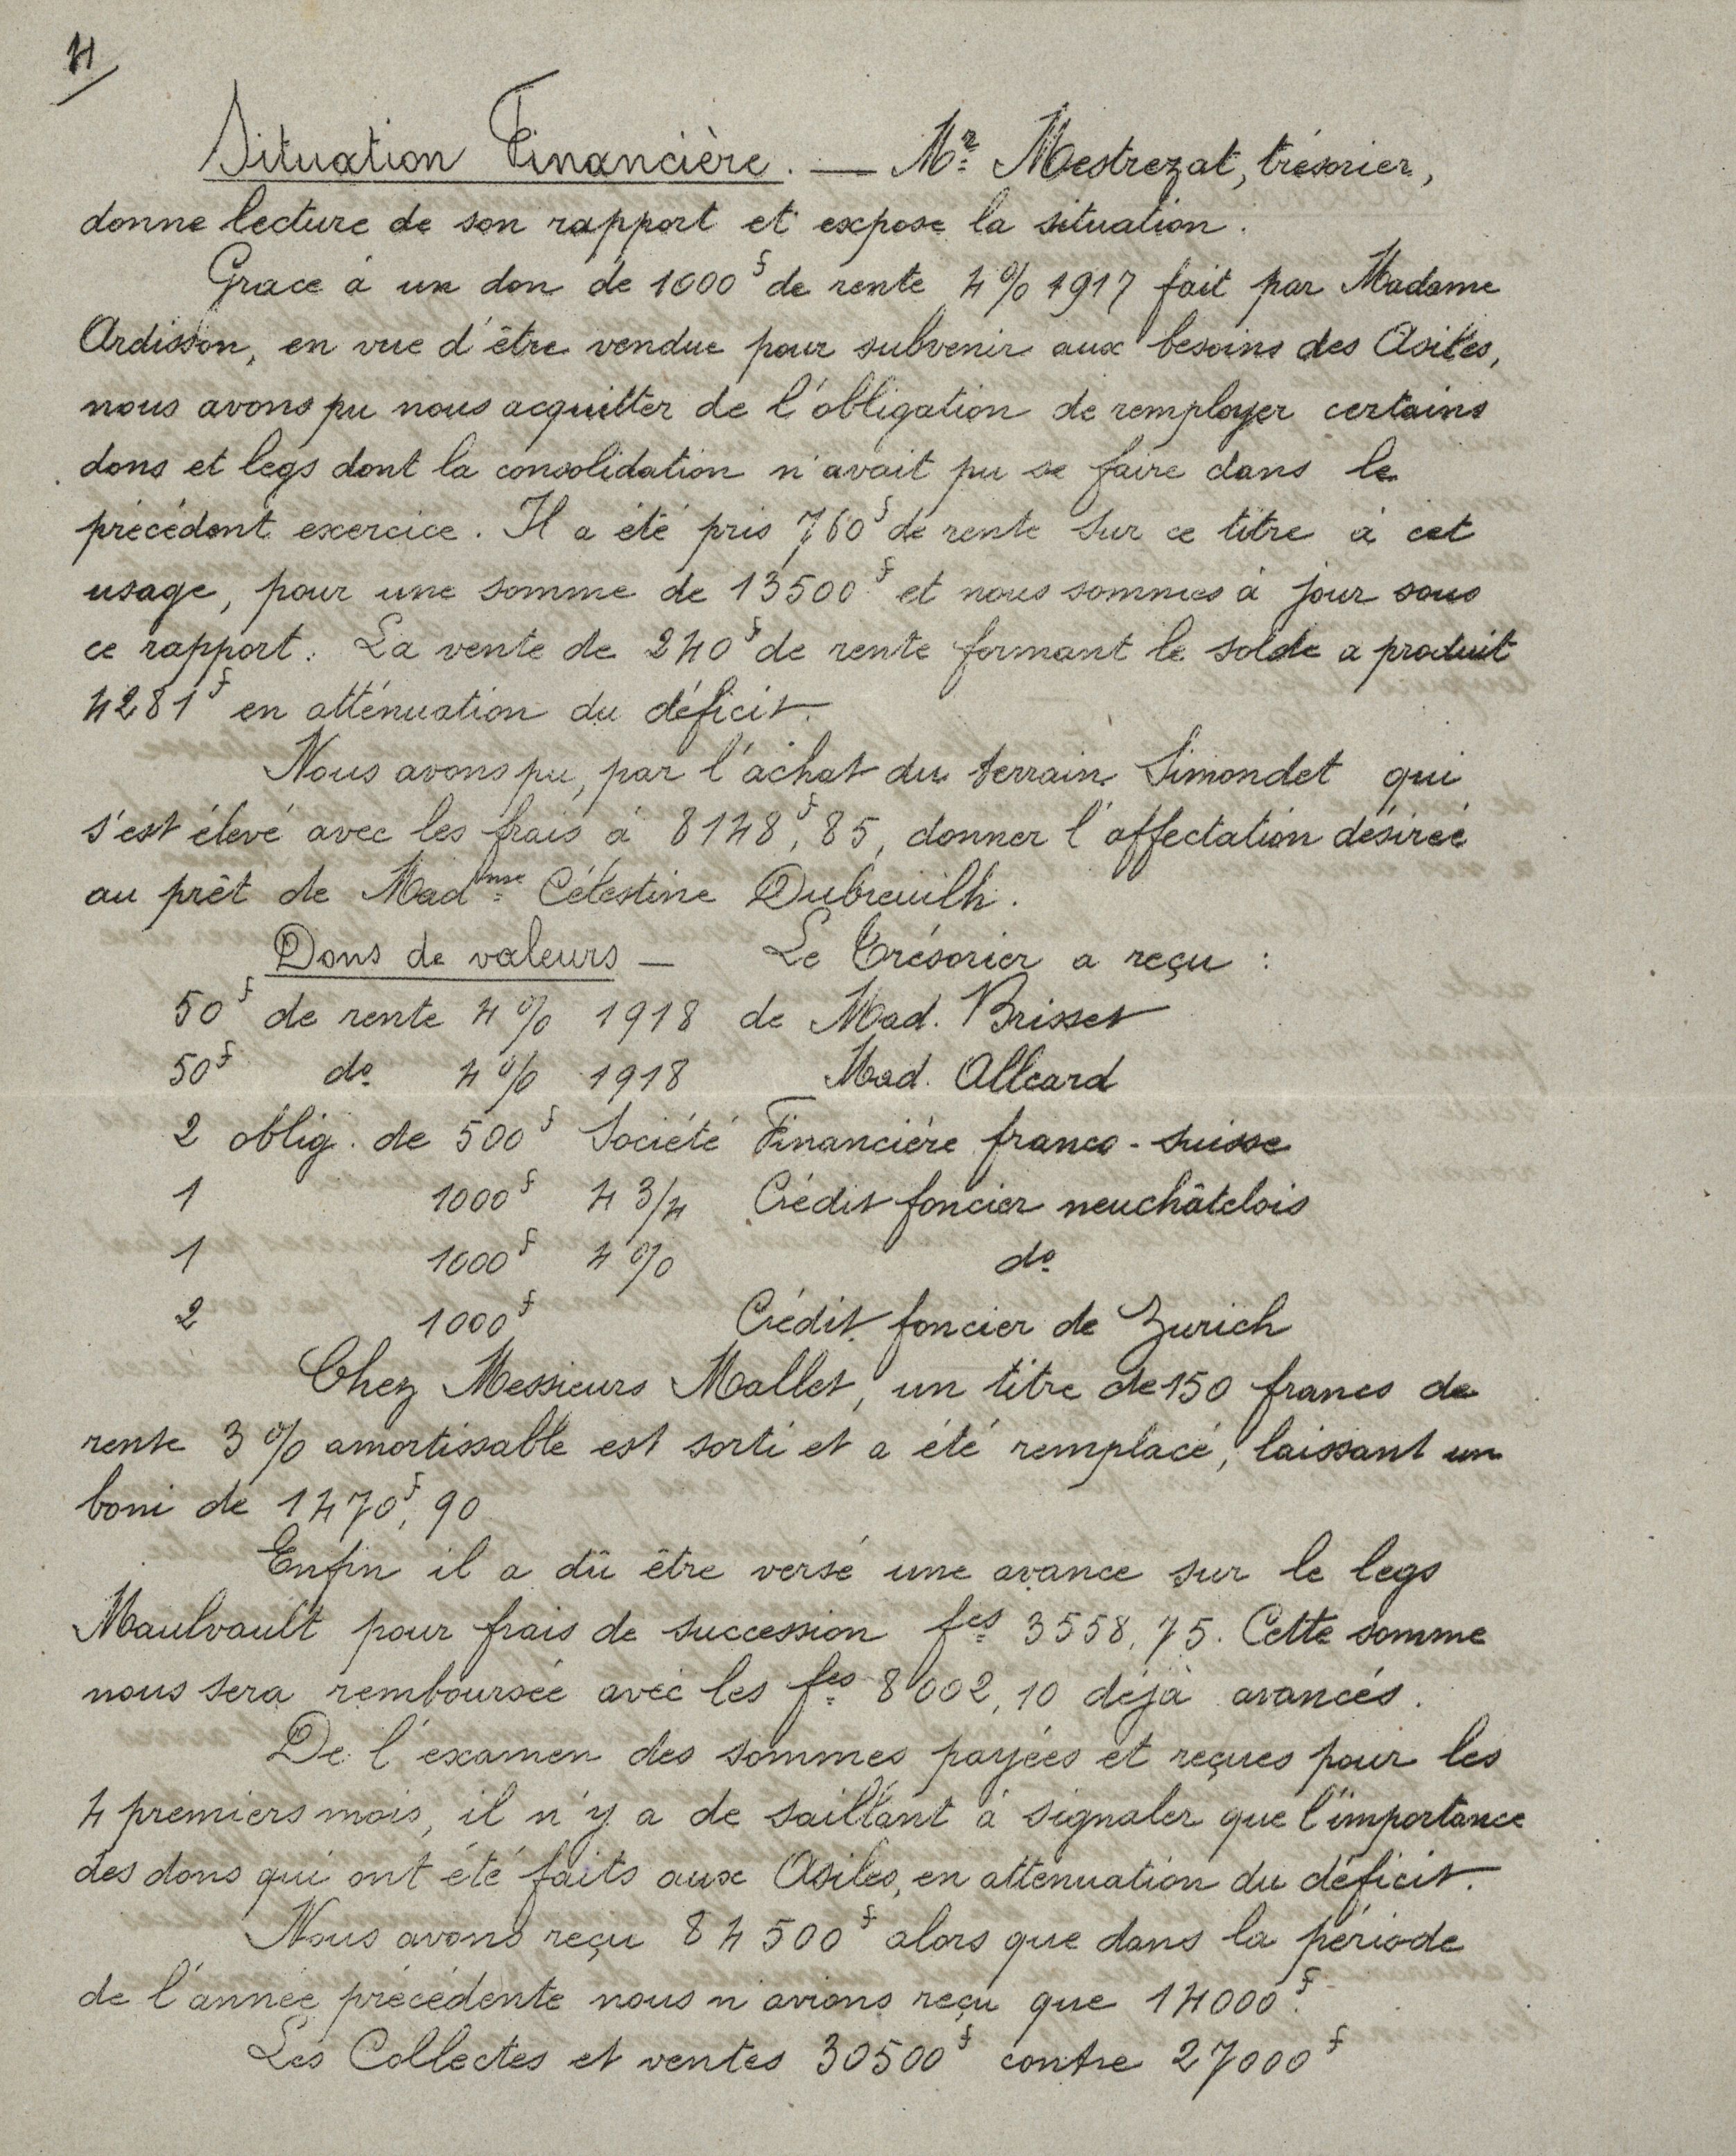 4/
Situation Financière. — Mr. Mestrezat, trésorier,
donne lecture de son rapport et expose la situation.
Grace à un don de 1000f de rente 4% 1917 fait par Madame
Ardisson, en vue d'être vendue pour subvenir aux besoins des Asiles,
nous avons pu nous acquitter de l'obligation de remployer certains
dons et legs dont la consolidation n'avait pu se faire dans le
précédent exercice. Il a été pris 760f de rente sur ce titre à cet
usage, pour une somme de 13500f et nous sommes à jour sous
ce rapport. La vente de 240f de rente formant le solde a produit
4281f en atténuation du déficit.
Nous avons pu, par l'achat du terrain Simondet qui
s'est élevé avec les frais à 8148f,85, donner l'affectation désirée
au prêt de Madme Célestine Dubreuilh.
Dons de valeurs — Le Trésorier a reçu :
50f de rente 4% 1918 de Mad. Brisset
50f do 4% 1918 Mad. Alleard
2 oblig. de 500f Société Financière franco-suisse
1 1000f 4 3/4 Crédit foncier neuchâtelois
1 1000f 4% do
2 1000f Crédit foncier de Zurich
Chez Messieurs Mallet, un titre de 150 francs de
rente 3% amortissable est sorti et a été remplacé, laissant un
boni de 1470f,90
Enfin il a dû être versé une avance sur le legs
Maulvault pour frais de succession fcs 3558,75. Cette somme
nous sera remboursée avec les fcs 8002,10 déjà avancés.
De l'examen des sommes payées et reçues pour les
4 premiers mois, il n'y a de saillant à signaler que l'importance
des dons qui ont été faits aux Asiles, en attenuation du déficit.
Nous avons reçu 84500f alors que dans la période
de l'année précédente nous n'avions reçu que 14000f.
Les Collectes et ventes 30500f contre 27000f